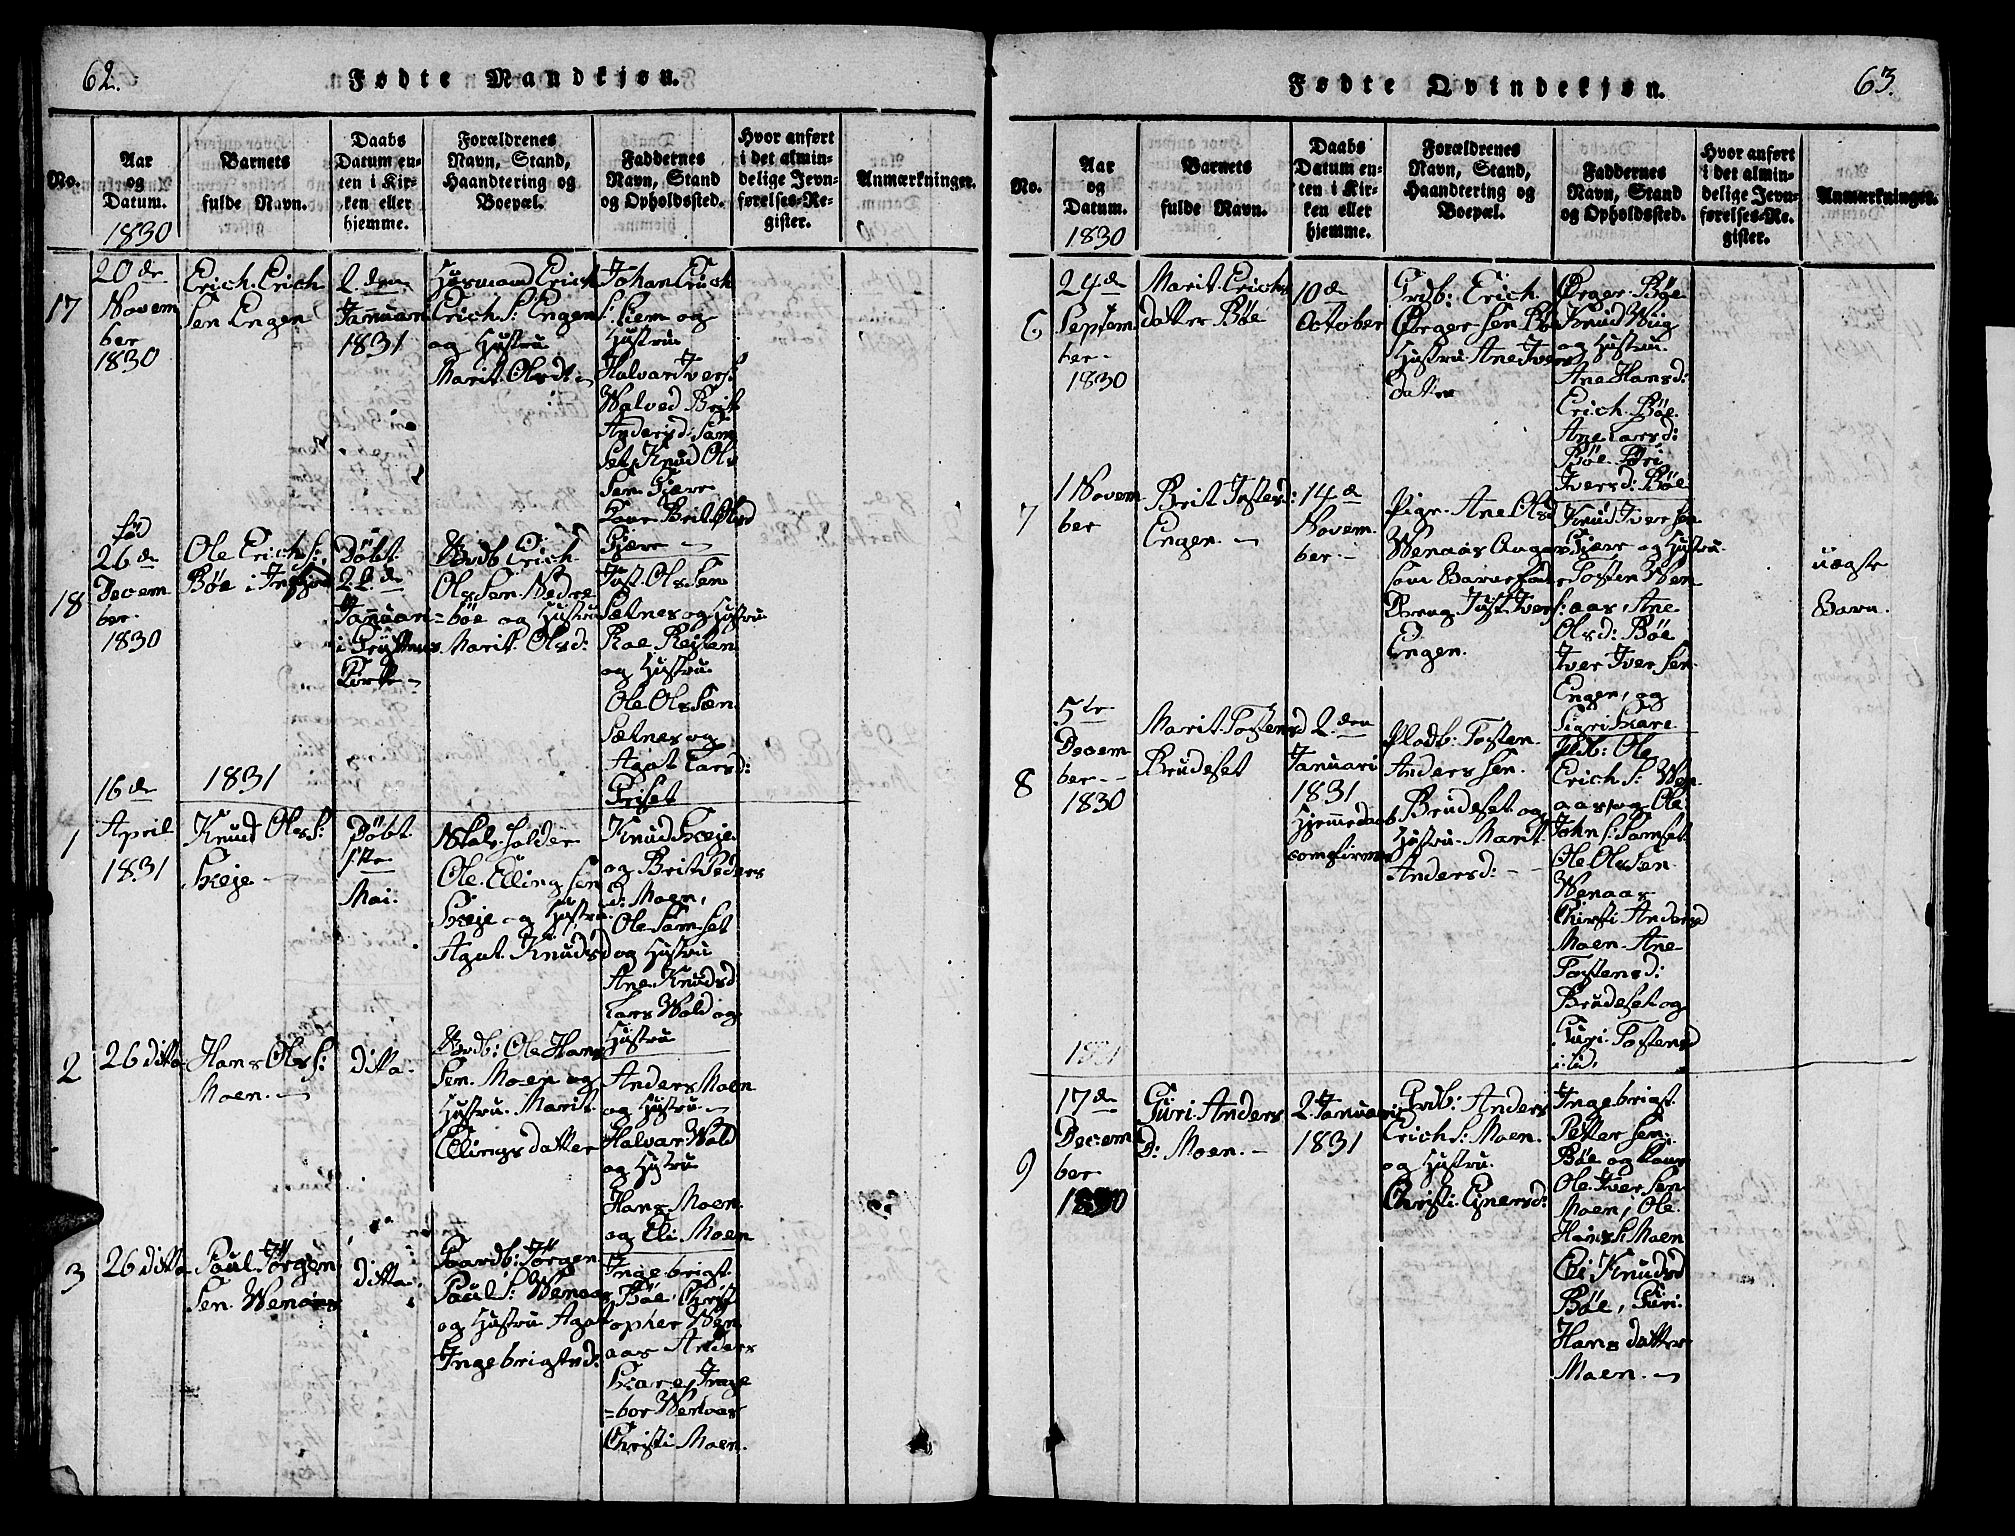 62.
Fødte Mandkjøn.
No.
Aar og Datum.
1830
Barnets fulde Navn.
Daabs Datum enten i Kirken eller hjemme.
Forældrenes Navn, Stand, Haandtering og Boepæl.
Faddernes Navn, Stand og Opholdssted.
Hvor anført i det almindelige Jevnførelses-Register.
Anmærkninger.
17
20de
Novem
ber
1830
Erich Erich
Sen Engen
2den
Januari
1831
Huusmand Erich
Erich S: Engen
og Hustru
Marit Olsdt
Johan Erich
S: Liem og
Hustru
Halvar Ivers:
Walved Brit
Andersd: Sam
Set, Knud Ols
Sen Gjære
Brit Olsd
Gjære
18
fød
26de
Decem
ber
1830
Ole Erich S:
Bøe i
Døbt
22de
Januari
i Gryttens
Kirke
Erich
Ols Sen Nedre
=bøe og Hustru
Marit Olsd:
Just Ols Sen
Sætnes og Hustru
og Hustru
Ole Ols Sæn
Sætnes og
Agat Larsd:
Griset
1831
1
16de
April
1831
Knud Ols S:
Skeje
Døbt
Mai.
Ole Elling Sen
Skeje og Hustru
Agat Knudsd
Knud Skeje
og Brit Peders
D: Moen,
Ole Samset
og Hustru
Ane Knudsd
Lars Wold og
Hustru
2
26 ditto
Hans Ols S:
Moen.
ditto
Ole Hans
Sen Moen og
Hustru Marit
Ellingsdatter
Anders Moen
og Hustru
Halvar Wold
og Hustru
Hans Moen
og Eli Moen
3
26 ditto
Paul Jørgen
Sen Wenaas
ditto
Gaardb: Jørgen
Paul S: Wenaas
og Hustru Agat
Ingebrigtsd:
Ingebrigt
Bøe, Christ
opher Wen
aas Anders
Skare, Inge
=bor Wenaas
Christi Moen.
63.
Fødte Qvindekjøn.
No.
Aar og Datum.
1830
Barnets fulde Navn.
Daabs Datum enten i Kirken eller hjemme.
Forældrenes Navn, Stand, Haandtering og Boepæl.
Faddernes Navn, Stand og Opholdssted.
Hvor anført i det almindelige Jevnførelses-Register.
Anmærkninger.
6
24de
Septem
ber
1830
Marit Erichs
datter Bøe
10de
October
Grdb: Erich
Ørger Sen Bø
Hustru Ane Ivers
datter
Ørger Bøe
Knud Wiig
og Hustru
Ane Hansd:
Erich Bøe
Ane Larsd:
Bøe
Iversd: Bøe
7
1 Novem
ber
Brit Justsd:
Engen
14de
Novem
ber
Pige Ane Olsd
Wenaas Angav
som Barnefader
Dreng Just Ivers:
Engen.
Knud Iver Sen
Gjære og Hustru
Tosten Wen
aas, Ane
Olsd: Bøe
Iver Iver Sen
Engen, og
Sigri Skare
uægte
Barn.
8
5te
Decem
ber
1830
Marit Tostensd
Brudeset
2den
Januari
1831
Hjemmedaab
comfirmert
Pladb: Tosten
Anders Sen
Brudeset og
Hustru Marit
Andersd:
Pldb: Ole
Erich S: Wen
aas, og Ole
John S: Samset
Ole Ols Sen
Wenaas
Christi Andersd
Moen Ane
Tostensd:
Brudeset og
Guri Tostensd
i Lid,
1831
9
17de
Decem
ber
1830
Guri Anders
D: Moen.
2 Januari
1831
Grdb: Anders
Erich S: Moen
og Hustru
Christi Ejnersd:
Ingebrigt
Petter Sen
Bøe og
Ole Iver Sen
Moen, Ole
Hans S: Moen
Eli Knudsd
Bøe, Guri
Hans datter
Moen.